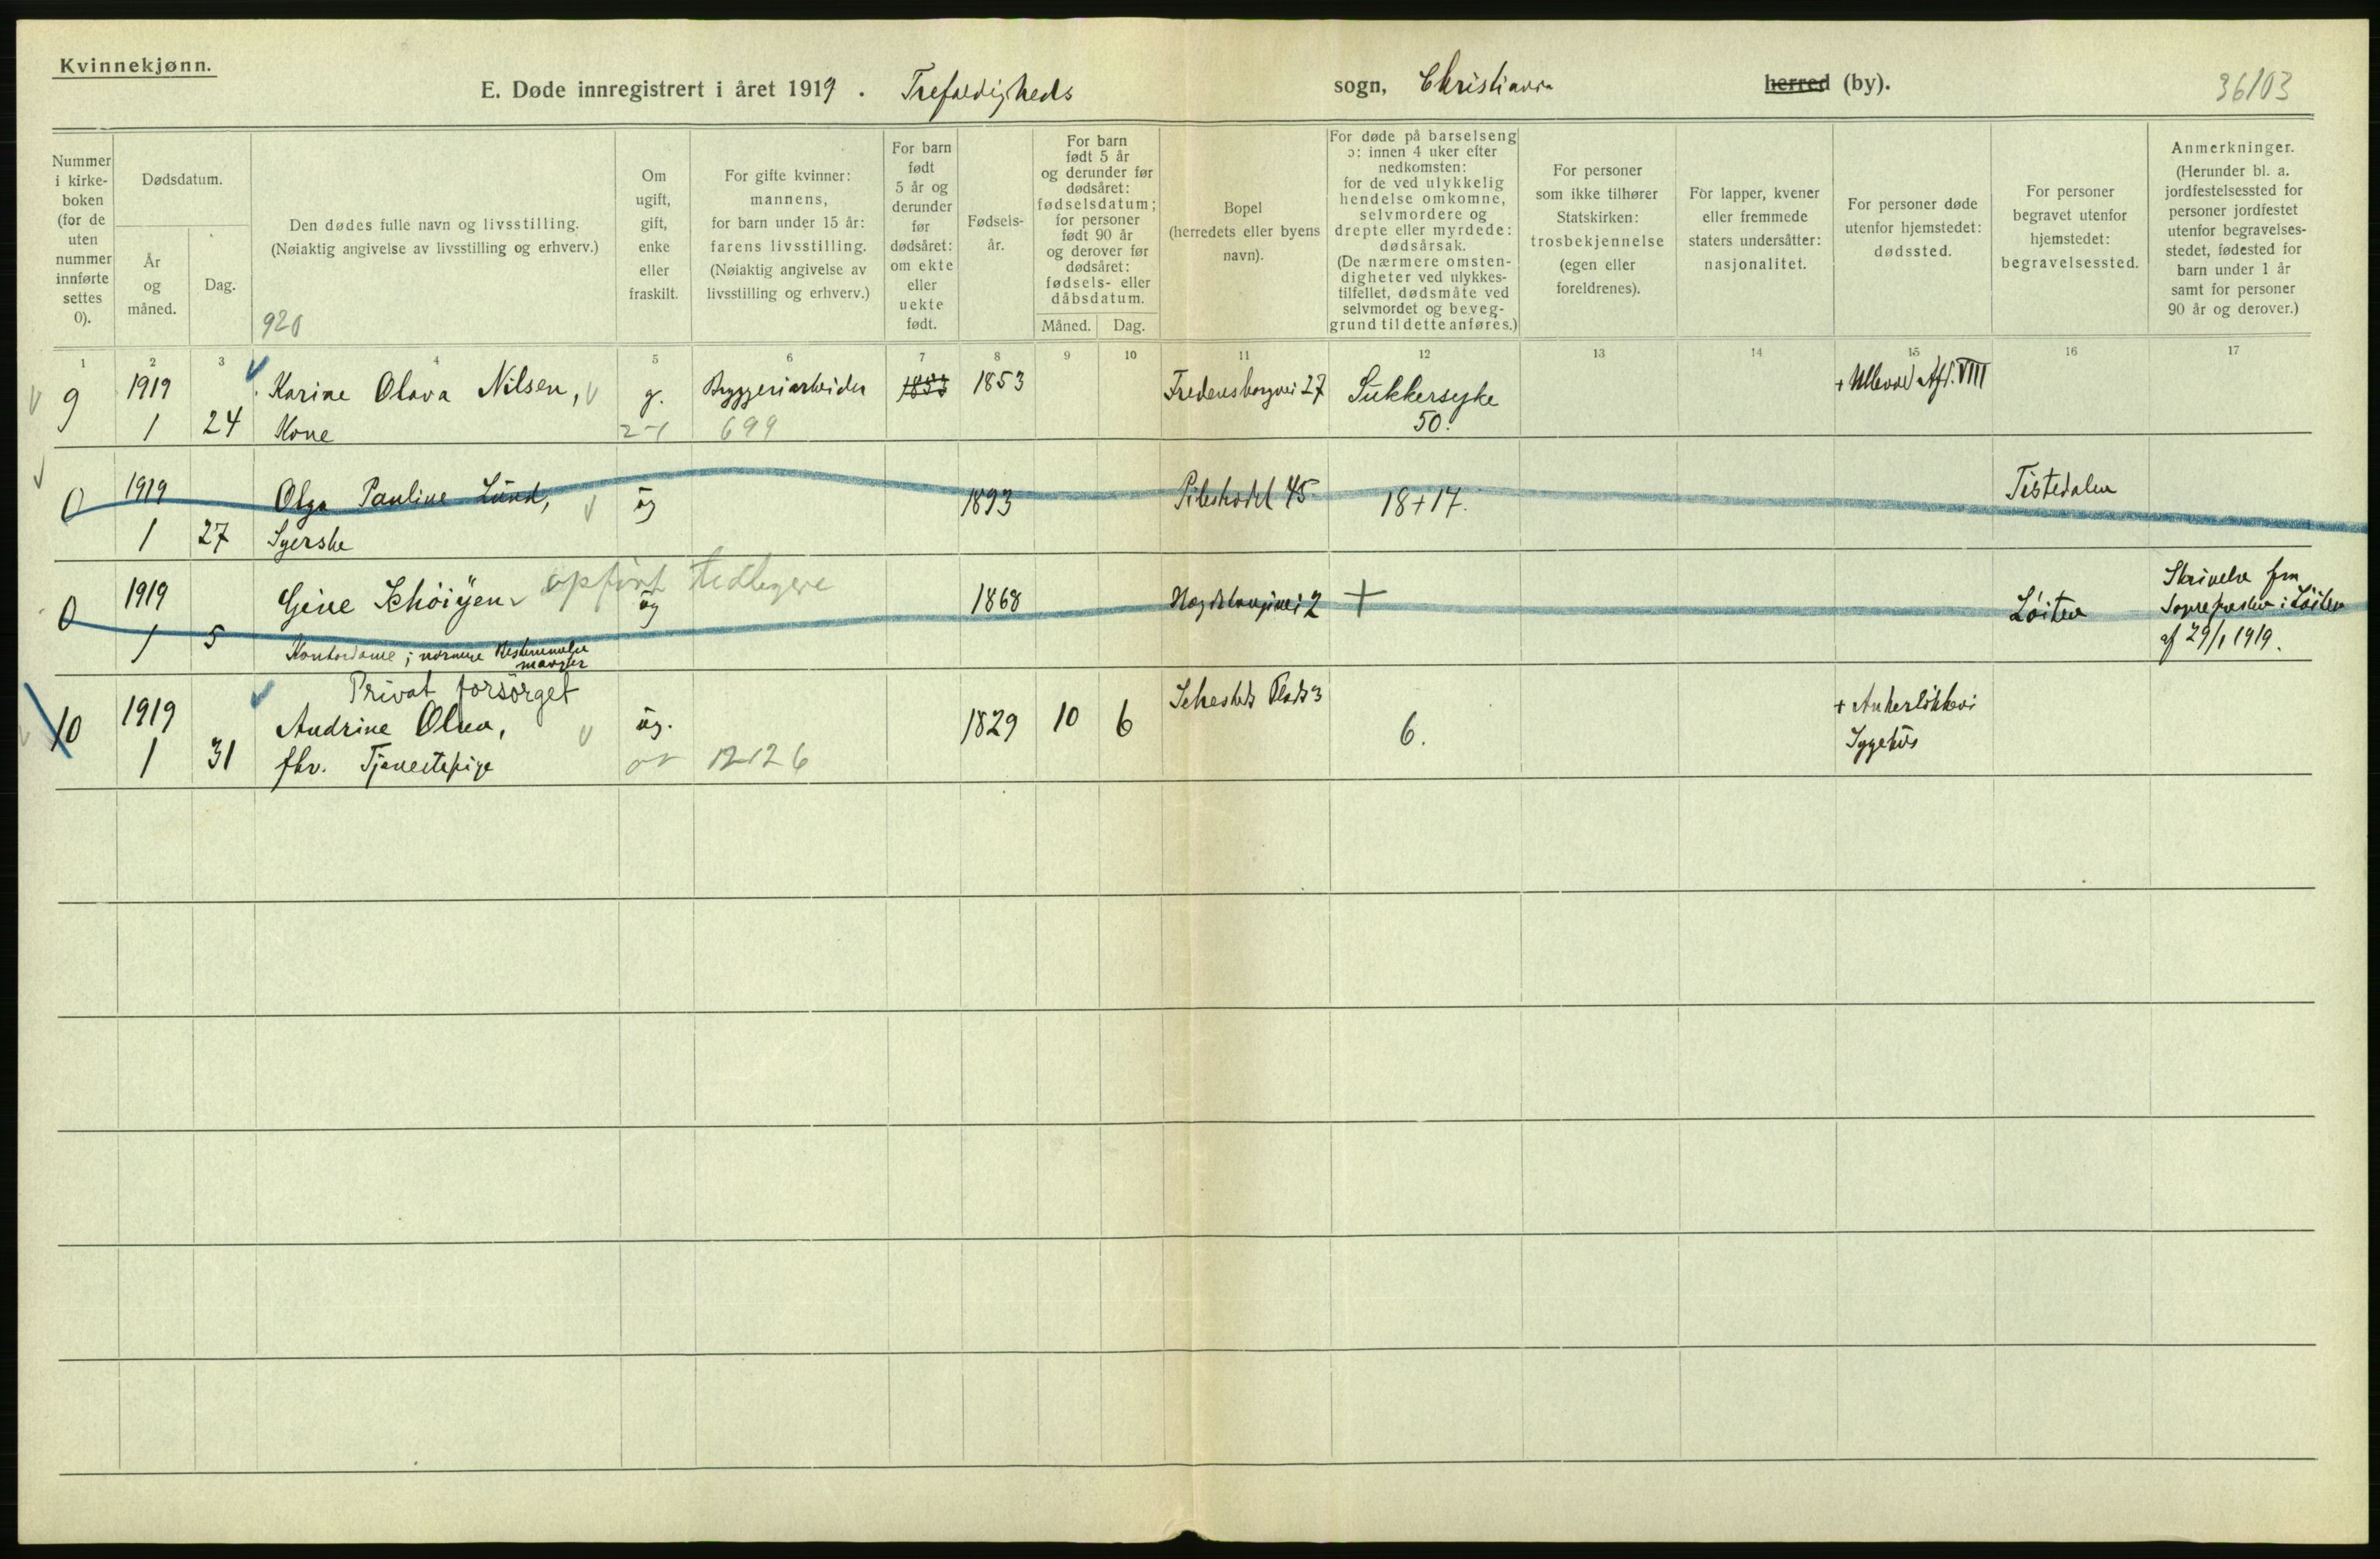 Kvinnekjønn.
E. Døde innregistrert i året 1919. Trefoldigheds sogn, Christiania herred (by). 36103
Nummer i kirke-boken (for de uten nummer innførte settes 0).
Dødsdatum.
År og måned.
Dag.
Den dødes fulle navn og livsstilling.
(Nøiaktig angivelse av livsstilling og erhverv.)
920
Om ugift, gift, enke eller fraskilt.
For gifte kvinner: mannens, for barn under 15 år: farens livsstilling. (Nøiaktig angivelse av livsstilling og erhverv.)
For barn født 5 år og derunder før dødsåret: om ekte eller uekte født.
Fødsels-år.
For barn født 5 år og derunder før dødsåret: fødselsdatum; for personer født 90 år og derover før dødsåret: fødsels- eller dåbsdatum.
Måned. Dag.
Bopel (herredets eller byens navn).
For døde på barselseng ɔ: innen 4 uker efter nedkomsten: for de ved ulykkelig hendelse omkomne, selvmordere og drepte eller myrdede: dødsårsak. (De nærmere omsten-digheter ved ulykkes-tilfellet, dødsmåte ved selvmordet og beveg-grund til dette anføres.)
For personer som ikke tilhører Statskirken: trosbekjennelse (egen eller foreldrenes).
For lapper, kvener eller fremmede staters undersåtter: nasjonalitet.
For personer døde utenfor hjemstedet: dødssted.
For personer begravet utenfor hjemstedet: begravelsessted.
Anmerkninger. (Herunder bl. a. jordfestelsessted for personer jordfestet utenfor begravelses-stedet, fødested for barn under 1 år samt for personer 90 år og derover.)
1 2 3 4 5 6 7 8 9 10 11 12 13 14 15 16 17
9 1919 Karine Olava Nilsen, g. Bryggeriarbeider 1853 1853 Fredensborgvei 27 Sukkersyke + Ullevål Afd. VIII
1 24 Kone 2-1 699 50.
0 1919 Olga Pauline Lund, ug 1893 Pilestrædet 45 18+17. Tistedalen
1 27 Syerske
0 1919 Gine Schöiyen opført tidligere ug 1868 2 + Löiten Skrivelse fra Sognepresten i Löiten af 29/1 1919.
1 5 Kontordame; nærmere Bestemmelse mangler
Privat forsørget
10 1919 Andrine Olsen, ug. 1829 10 6 Sehesteds Plads 3 6. + Ankerløkkens Sygehus
1 31 fhv. Tjenestepige 12126